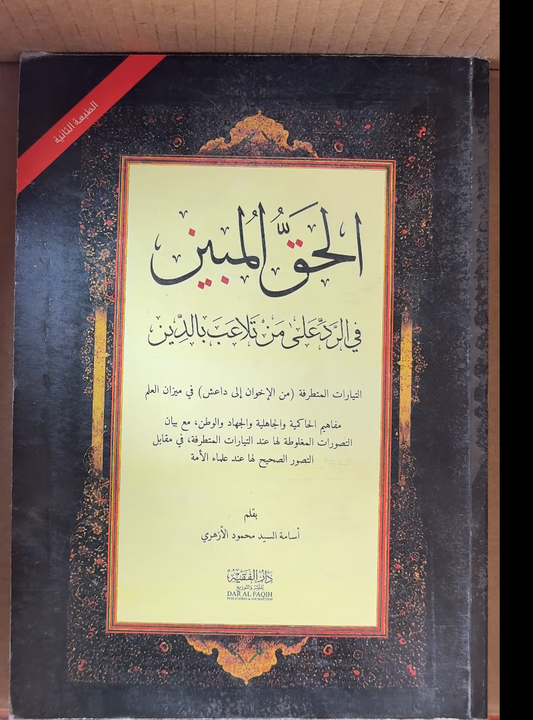 الطبعة الثانية
الحَقُّ المُبين
في الرَّدِّ عَلى مَنْ تَلاعَبَ بِالدِّين
التيارات المتطرفة (من الإخوان إلى داعش) في ميزان العلم
مفاهيم الحاكمية والجاهلية والجهاد والوطن، مع بيان
التصورات المغلوطة لها عند التيارات المتطرفة، في مقابل
التصور الصحيح لها عند علماء الأمة
بقلم
أسامة السيد محمود الأزهري
دار الفقيه
للنشر والتوزيع
DAR AL FAQIH
PUBLICATION & DISTRIBUTION